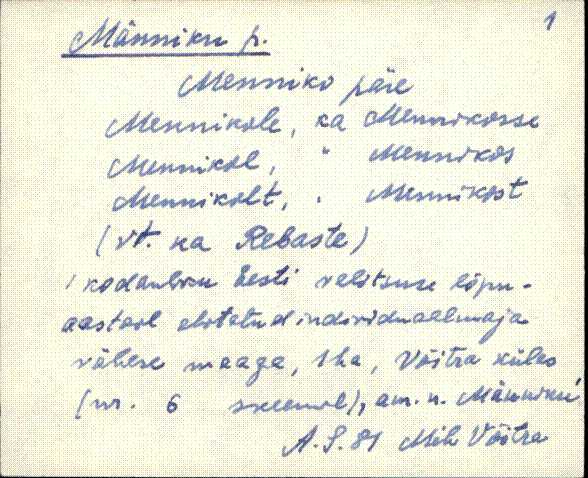 1
Männiku p.
Menniko päre
Mennikole, ka Mennikosse
Mennikol, " Mennikos
Mennikolt, " Mennikost
(vt. ka Rebaste)
kodanliku Eesti valitsuse lõpu-
aastail ehitatud individuaalmaja
vähese maaga, 1 ha, Võitra külas
(nr. 6 skeemil), am. n. Männiku
A.S. 81 Mih Võitra